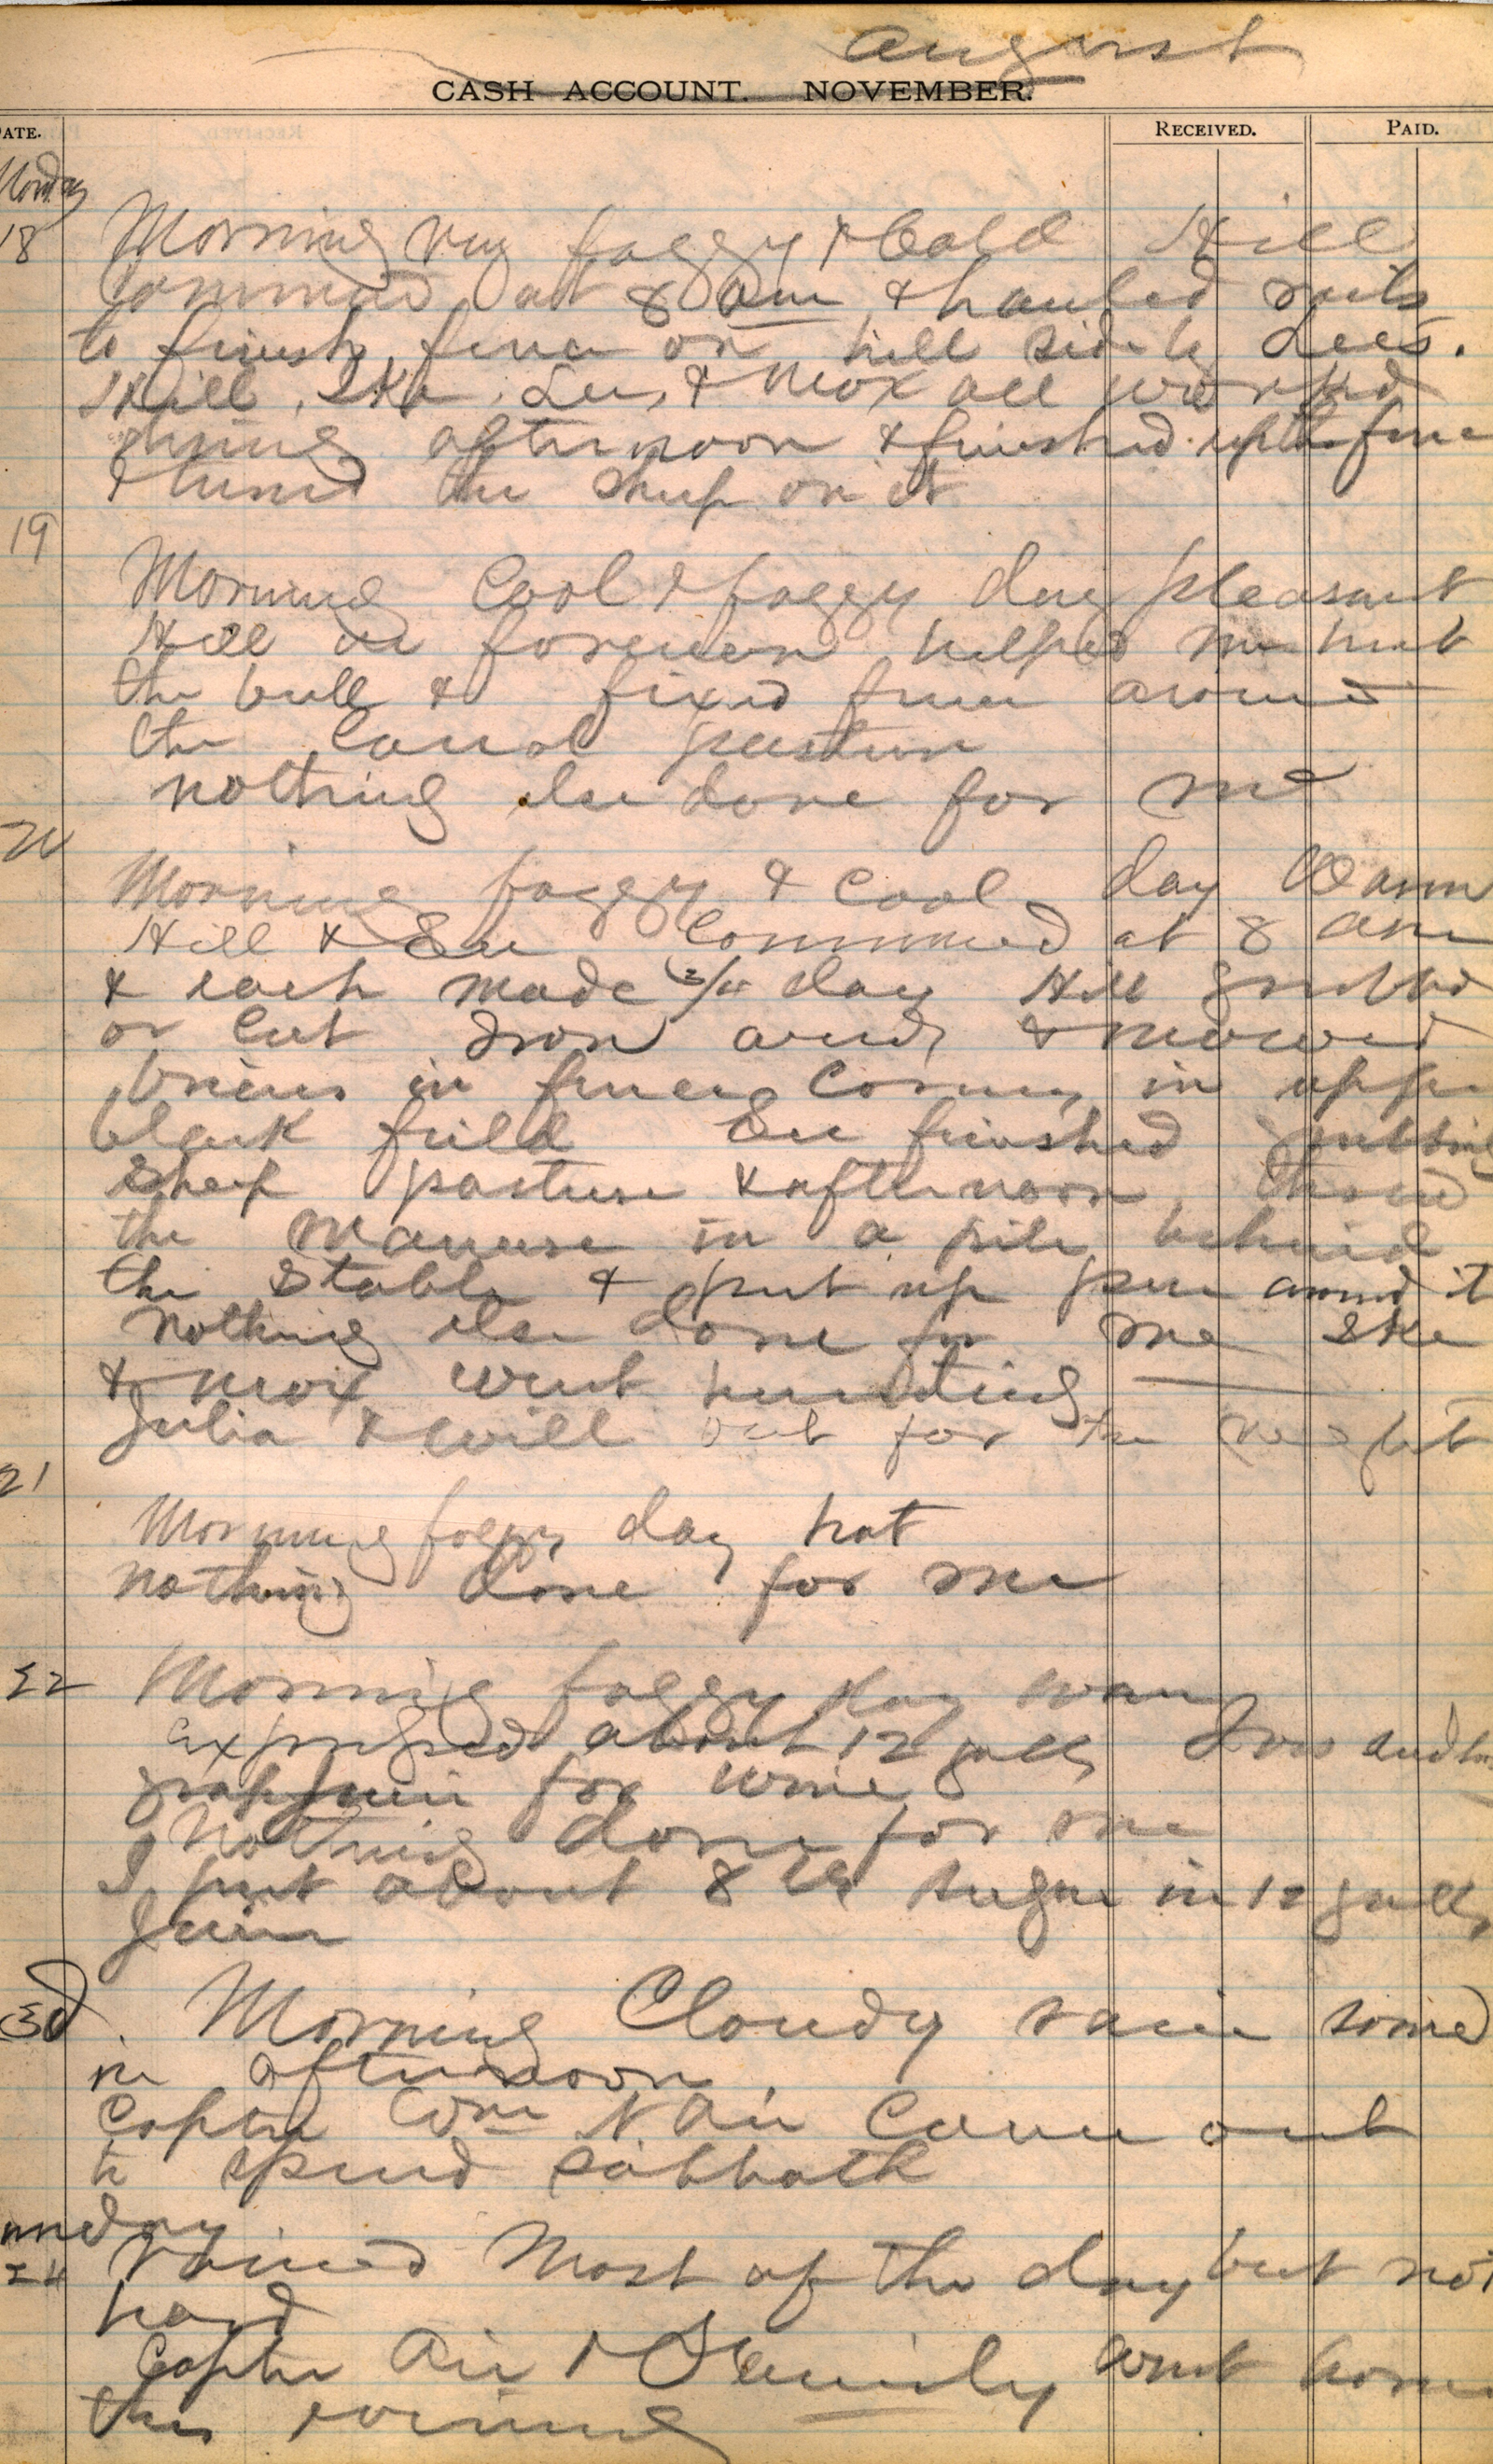 August
CASH ACCOUNT. NOVEMBER.
DATE. RECEIVED. PAID.
Monday
18 Morning very foggy & Cold Hill
Commenced at 8 am & hauled rails
to finish fence on hill side by Lees.
Hill, Ike, Lee, & Mox all worked
during afternoon & finished up the fence
& turned the sheep on it
19
Morning Cool & foggy day pleasant
Hill in forenoon helped me
the bull & fixed fence around
the Canal pasture
nothing else done for me
20
Morning foggy & Cool day Warm
Hill & Lee Commenced at 8 am
& each made 3/4 day Hill grubbed
or cut Iron weeds & mowed
briers in fence Corners in upper
black field Lee finished grubbing
Sheep pasture & afternoon
the Manure in a pile behind
the Stable & put up pen around it
Nothing else done for me Ike
& Mox went hunting
Julia & Will out for the
21
Morning foggy day hot
nothing done for me
22 Morning foggy day warm
Expressed about 12 galls Ives
grape juice for wine
Nothing done for me
I put about 8 lbs sugar in 12 galls
Juice
3d. Morning Cloudy rain some
in afternoon
Captn Wm N. Air Came out
to spend sabbath
unday
24 Rained Most of the day but not
hard
Captn Air & Family went home
this evening